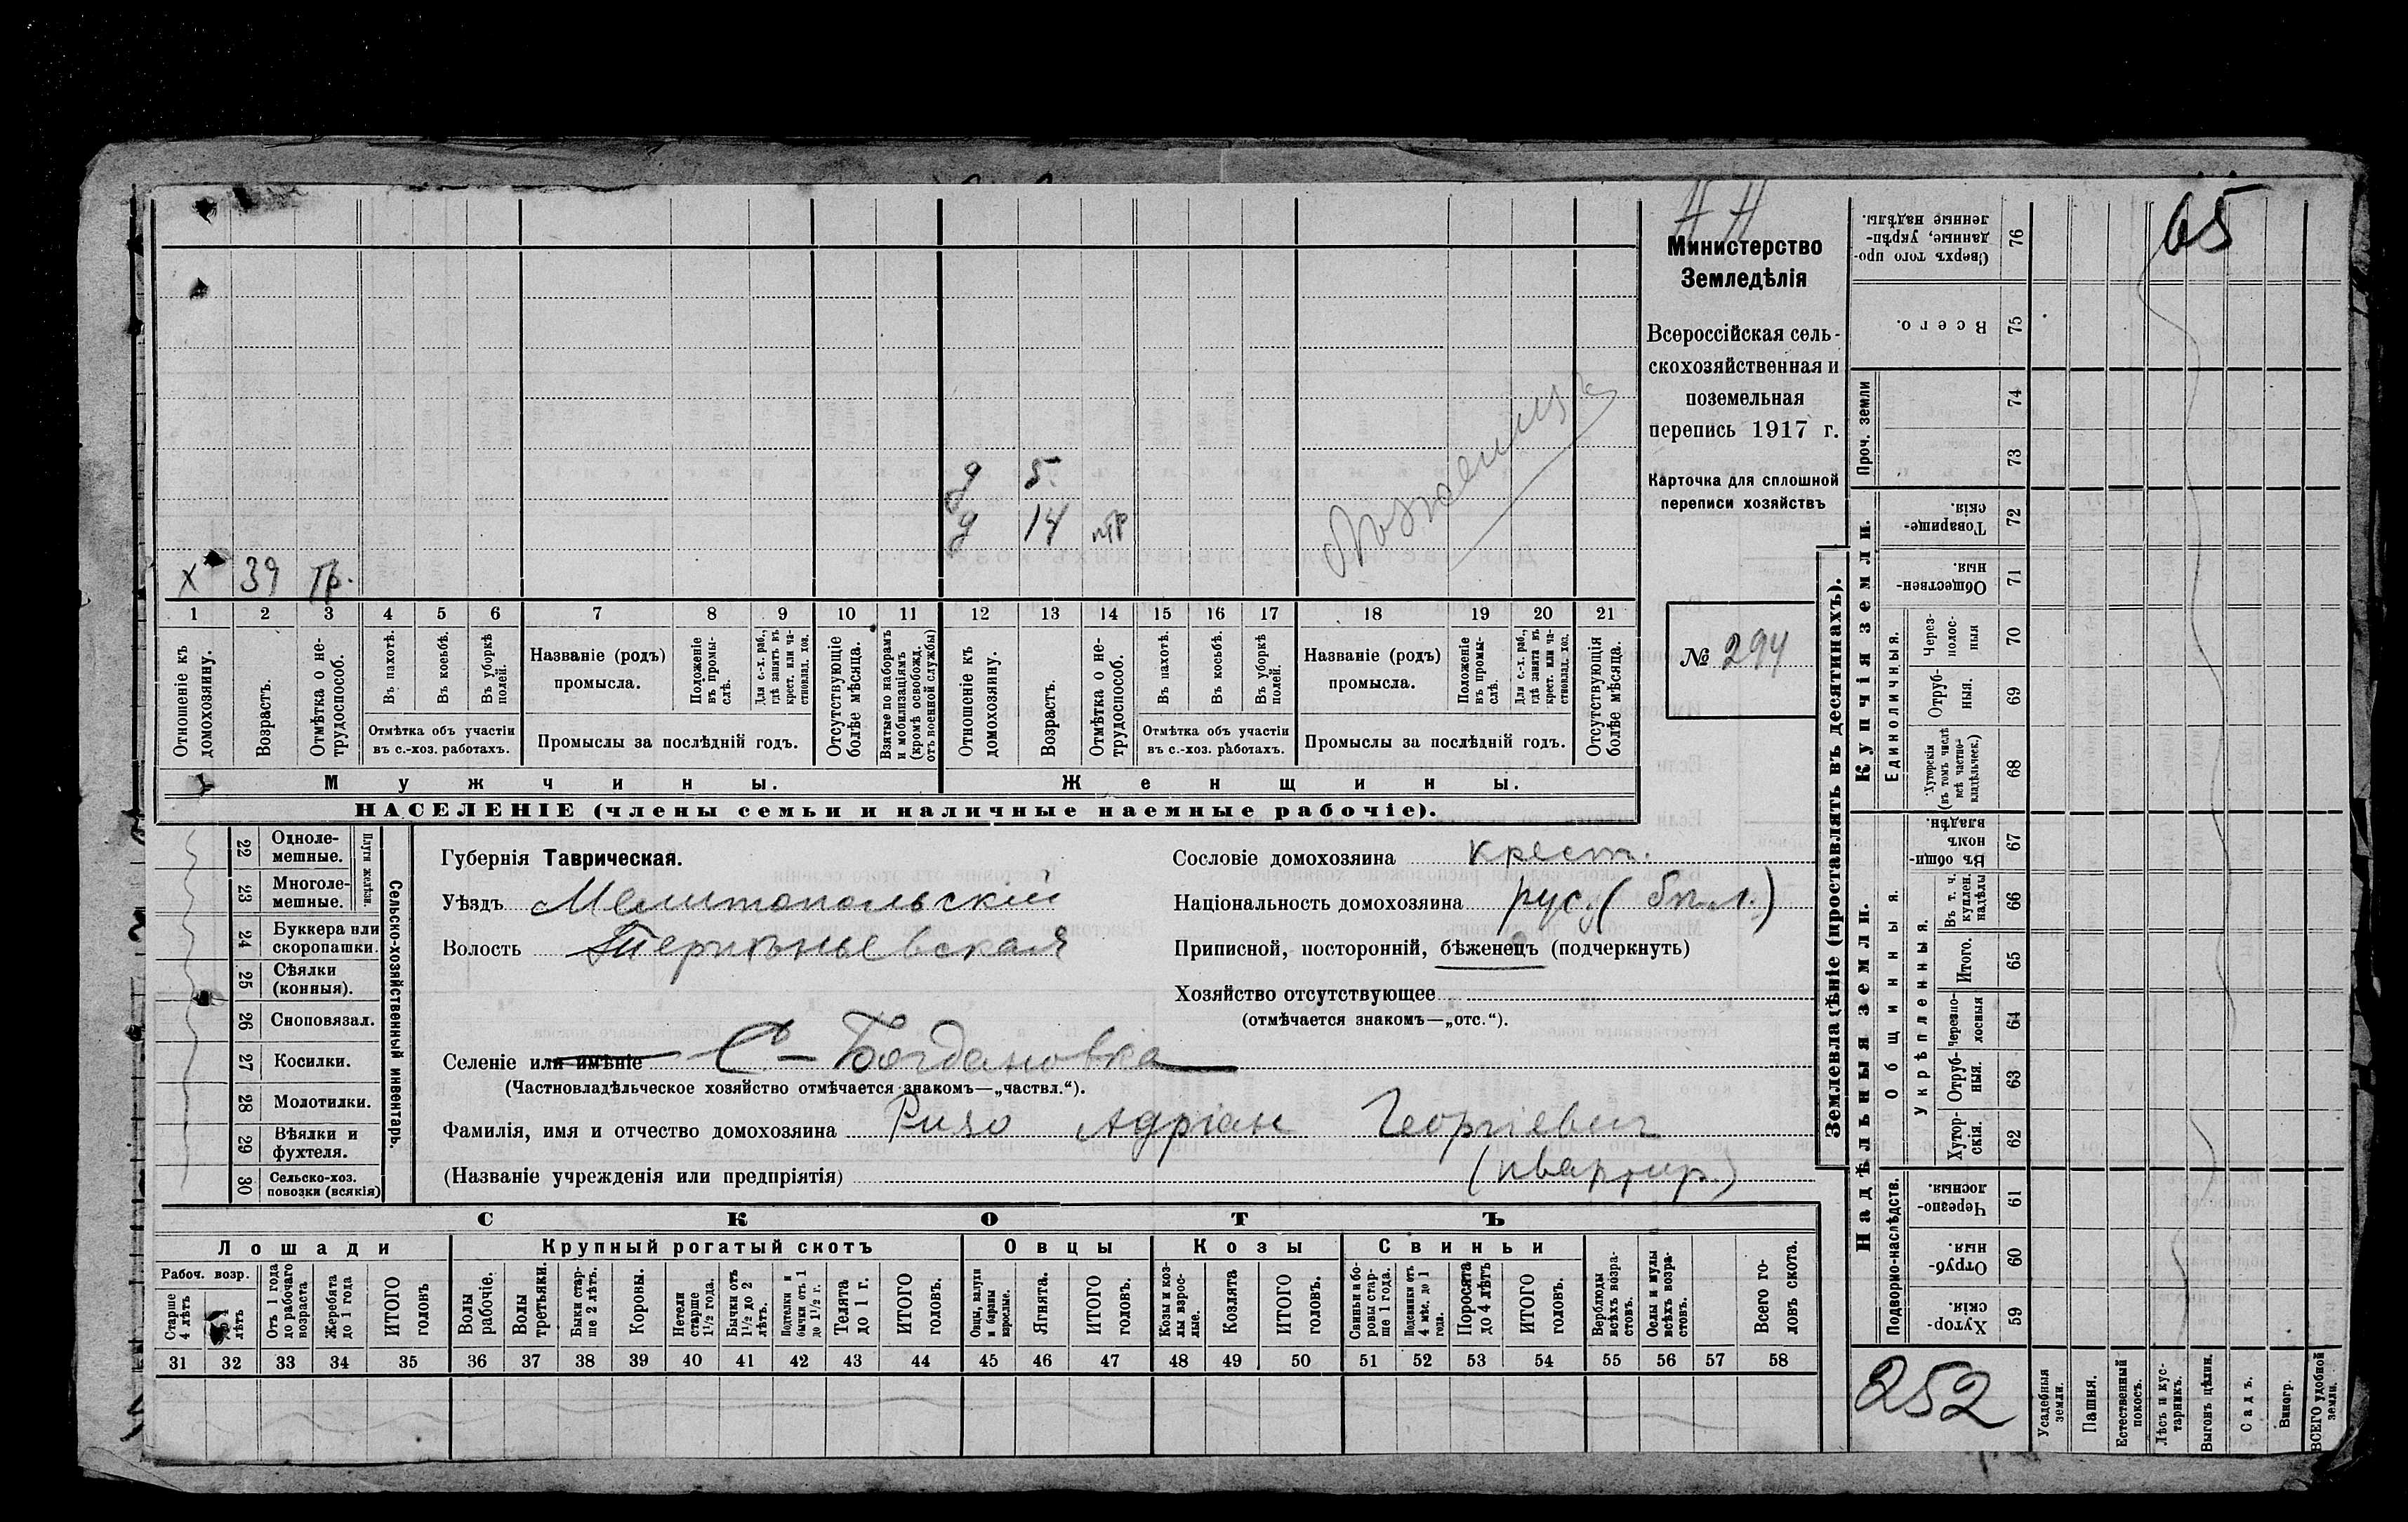 65
Министерство
Земледѣлія
Всероссійская сель-
скохозяйственная и
поземельная
перепись 1917 г.
Карточка для сплошной
переписи хозяйствъ
№ 294
д 5
д 14
х 39
1 2 3 4 5 6 7 8 9 10 11 12 13 14 15 16 17 18 19 20 21
Отношеніе къ домохозяину.
Возрастъ.
Отмѣтка о не-трудоспособ.
Въ пахотѣ.
Въ косьбѣ.
Въ уборкѣ полей.
Отмѣтка объ участіи
въ с.-хоз. работахъ.
Названіе (родъ)
промысла.
Положеніе въ промы-слѣ.
Для с.-х. раб., гдѣ занятъ въ крест. или ча-стновлад. хоз.
Промыслы за послѣдній годъ.
Отсутствующіе болѣе мѣсяца.
Взятые по наборамъ и мобилизаціямъ (кромѣ освобожд. отъ военной службы)
Отношеніе къ домохозяину.
Возрастъ.
Отмѣтка о не-трудоспособ.
Въ пахотѣ.
Въ косьбѣ.
Въ уборкѣ полей.
Отмѣтка объ участіи
въ с.-хоз. работахъ.
Названіе (родъ)
промысла.
Положеніе въ промы-слѣ.
Для с.-х. раб., гдѣ занята въ крест. или ча-стновлад. хоз.
Промыслы за послѣдній годъ.
Отсутствующія болѣе мѣсяца.
Мужчины.
Женщины.
НАСЕЛЕНІЕ (члены семьи и наличные наемные рабочіе).
Сельско-хозяйственный инвентарь.
Плуги желѣзн.
22 Одноле-мешные.
23 Многоле-мешные.
24 Буккера или скоропашки.
25 Сѣялки (конныя).
26 Сноповязал.
27 Косилки.
28 Молотилки.
29 Вѣялки и фухтеля.
30 Сельско-хоз. повозки (всякія)
Губернія Таврическая.
Уѣздъ Мелитопольскій
Волость
Селеніе или имѣніе С-Богдановка
(Частновладѣльческое хозяйство отмѣчается знакомъ—„частвл.“).
Фамилія, имя и отчество домохозяина Ризо Адріан Георгіевич
(Названіе учрежденія или предпріятія) (квартир.)
Сословіе домохозяина крест.
Національность домохозяина рус.
Приписной, посторонній, бѣженецъ (подчеркнуть)
Хозяйство отсутствующее
(отмѣчается знакомъ—„отс.“).
СКОТЪ
Лошади
Крупный рогатый скотъ
Овцы
Козы
Свиньи
Рабоч. возр.
Старше 4 лѣтъ
лѣтъ
Отъ 1 года до рабочаго возраста
Жеребята до 1 года
ИТОГО головъ
Волы рабочіе.
Волы третьяки.
Быки стар-ше 2 лѣтъ.
Коровы.
Нетели старше 1½ года.
Бычки отъ 1½ до 2 лѣтъ.
Подтелки и бычки отъ 1 до 1½ г.
Телята до 1 г.
ИТОГО головъ.
Овцы, валухи и бараны взрослые.
Ягнята.
ИТОГО головъ.
Козы и коз-лы взрос-лые.
Козлята
ИТОГО головъ.
Свиньи и бо-ровы стар-ше 1 года.
Подсвинки отъ 4 мѣс. до 1 года.
Поросята до 4 лѣтъ
ИТОГО головъ.
Верблюды всѣхъ возра-стовъ.
Ослы и мулы всѣхъ возра-стовъ.
Всего го-ловъ скота.
31 32 33 34 35 36 37 38 39 40 41 42 43 44 45 46 47 48 49 50 51 52 53 54 55 56 57 58
Землевладѣніе (проставлять въ десятинахъ).
Надѣльныя земли.
Купчія земли.
Проч. земли
Сверхъ того про-данные, укрѣп-ленные надѣлы. 76
Всего. 75
74
73
Товарище-скія. 72
Обществен-ныя. 71
Единоличныя.
Через-полос-ныя 70
Отруб-ныя. 69
Хуторскія (въ томъ числѣ всѣ частно-владѣльческ.) 68
Общинныя.
Въ общи-номъ владѣн. 67
Укрѣпленныя.
Въ т. ч. куплен. надѣлы 66
Итого. 65
Черезпо-лосныя 64
Отруб-ныя. 63
Хутор-скія. 62
Подворно-наслѣдств.
Черезпо-лосныя. 61
Отруб-ныя. 60
Хутор-скія. 59
252
Усадебныя земли.
Пашня.
Естественный покосъ.
Лѣсъ и кус-тарникъ.
Выгонъ цѣлин.
Садъ.
Виногр.
ВСЕГО удобной земли.